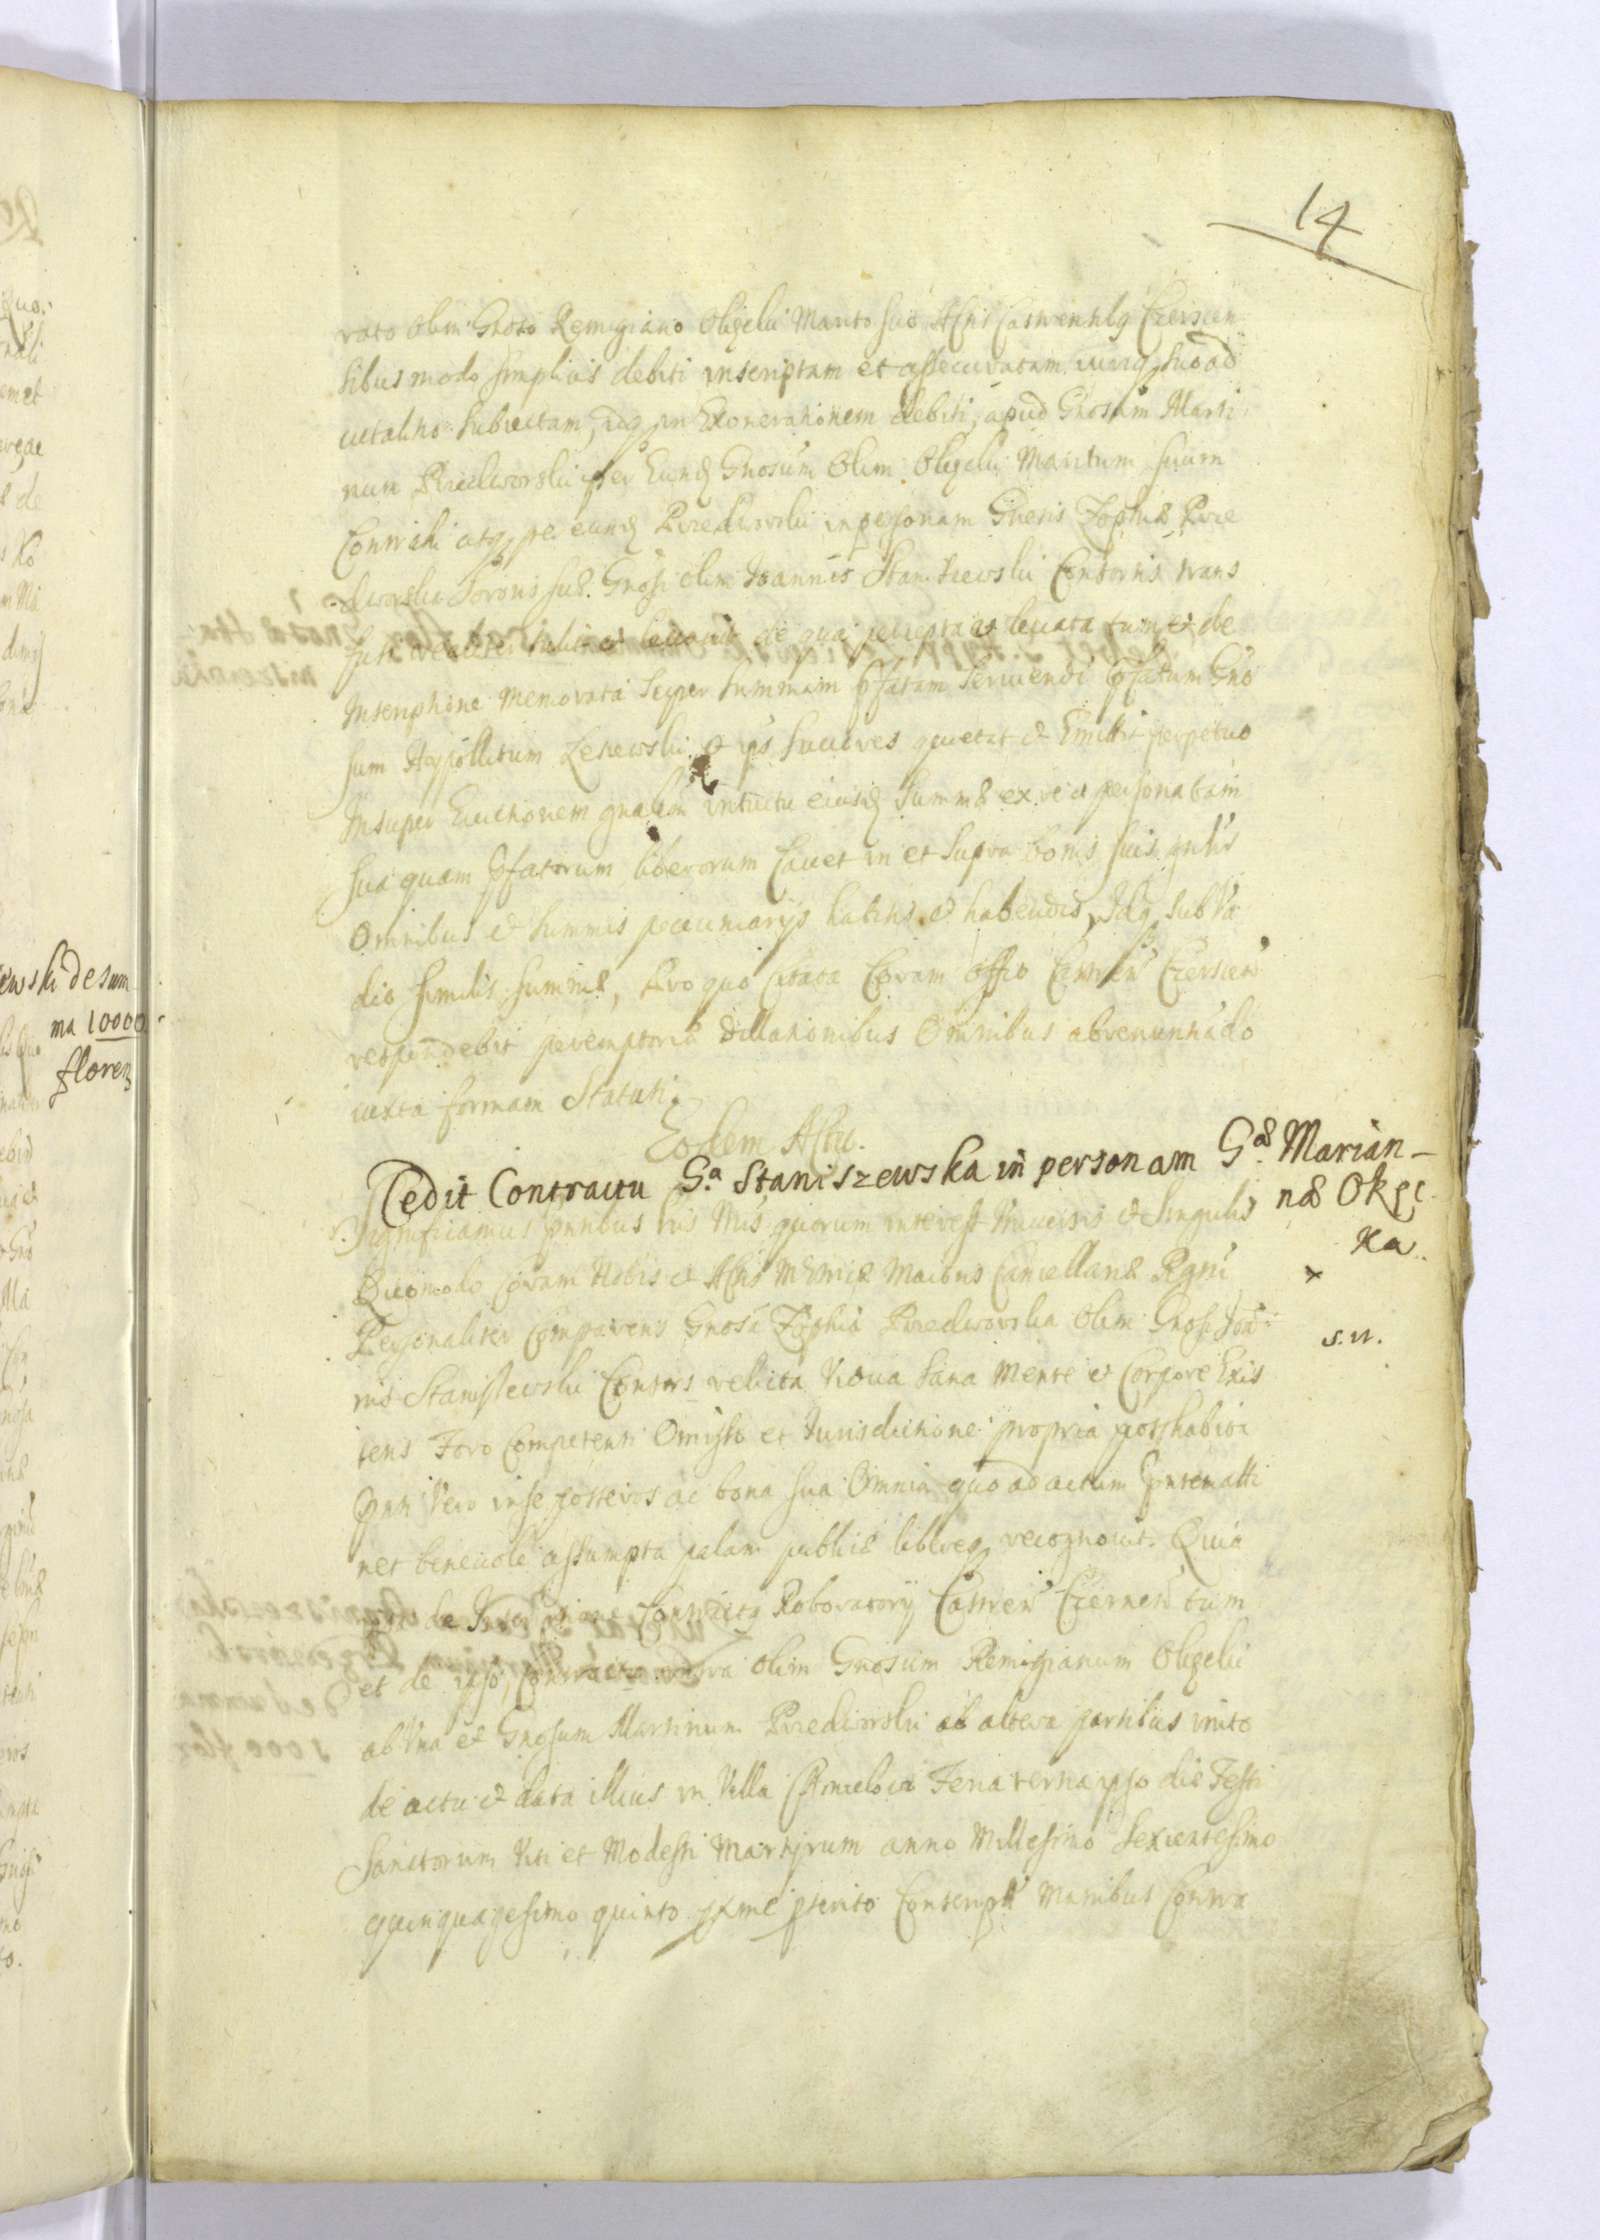 14
rato olim Gnoso Remigiano Okęcki Marito suo Actis Castrensibq Czerscen
sibus modo simplicis debiti inscriptam et assecuratam iuriq suo ad
vitalitio subiectam, idq in Exonerationem debiti, apud Gnosum Marti
num Przedworski per Eundẽ Gnosum Olim Okęcki Maritum suum
Contracti atq per eundẽ Przedworski in personam Gnesis Zophiæ Prze
dworska Sororis suæ Gnosi olim Joannis Staniszewski Consortis trans
fusi realiter tulit et levavit de qua percepta et levata tum et de
Inscriptione memorata super summam pfatam serviendi pfatum Gno
sum Hyppollitum Leżewski et ips succres quietat et Emittit perpetuo
Insuper Evictionem gnalem intuitu eiusdẽ summæ ex re et persona tam
sua quam pfatorum liberorum Cavet in et supra bonis suis gnlis
Omnibus et summis pecuniarijs habitis et habendis, Idq sub Va
dio similis summæ, Pro quo Citata Coram Offo Castren Czerscen
respondebit peremptorie Dillationibus Omnibus abrenuntiado
iuxta formam Statuti.
Eodem Actu.
Cedit Contractu Gᵃ. Staniszewska in personam Gᵃᵉ. Marian-
næ Okęc
ka.
Significamus pntibus lris Nris quorum interest Universis et Singulis
Quomodo Coram Nobis et Actis Metricæ Maioris Cancellariæ Regni
Personaliter Comparens Gnosa Zophia Przedworska Olim Gnosi Joa
nis Staniszewski Consors relicta Vidua sana Mente et Corpore Exis
tens Foro Competenti Omisso et Jurisdictione propria posthabita
Pnti Vero in se posteros ac bona sua Omnia quo ad actum pntem atti
net benevole assumpta palam publice libereq recognovit. Quia
ipsa de Inscriptione Contractq Roboratorij Castren Czernen tum
et de ipso Contractu intra olim Gnosum Remigianum Okęcki
ab Una et Gnosum Martinum Przedworski ab altera partibus inito
de actu et data illius in Villa Chmielowa Feria terna ipso die Festi
Sanctorum Viti et Modesti Martijrum anno Millesimo Sexcentesimo
quinquagesimo quinto pxime pterito Conscripti Manibus Contra
x
s. n.
ewski de sum
ma 10000
floren